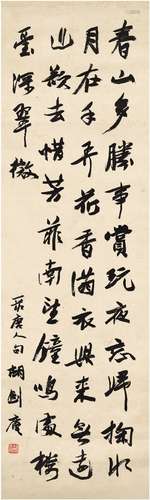 春山多勝事賞玩夜忘歸掬水
月在手弄花香滿衣興來無遠
近欲去惜芳菲南望鐘鳴處樓
臺深翠微
唐人句 胡